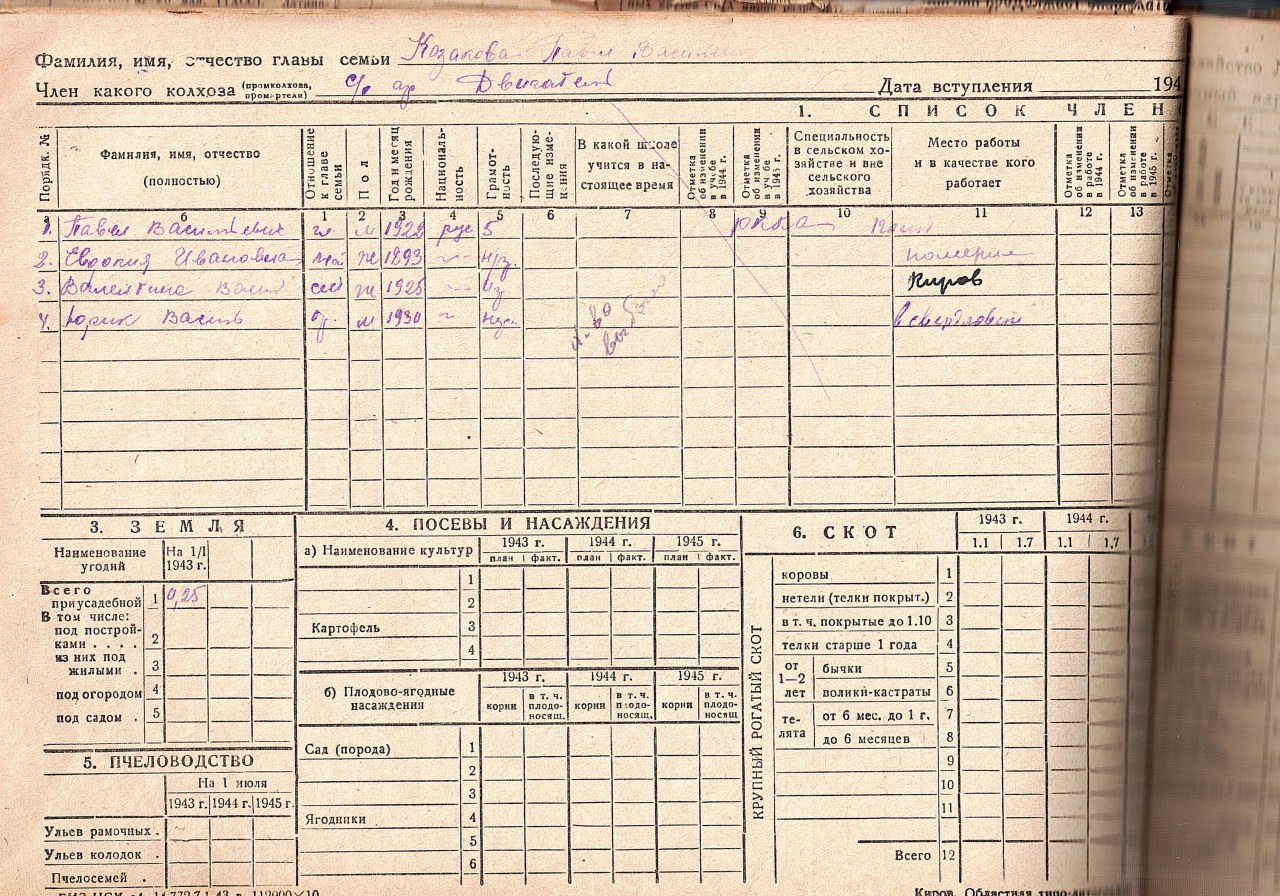 Фамилия, имя, отчество главы семьи Казакова Павел
Член какого колхоза (промколхоза, промартели) с/х ар Двигатель Дата вступления 194
1. СПИСОК ЧЛЕН
Порядк. №
Фамилия, имя, отчество (полностью)
Отношение к главе семьи
Пол
Год и месяц рождения
Националь-ность
Грамот-ность
Последую-щие изме-нения
В какой школе учится в на-стоящее время
Отметка об изменении в учебе в 1944 г.
Отметка об изменении в учебе в 1945 г.
Специальность в сельском хо-зяйстве и вне сельского хозяйства
Место работы и в качестве кого работает
Отметка об изменении в работе в 1944 г.
Отметка об изменении в работе в 1945 г.
Отметка
а б 1 2 3 4 5 6 7 8 9 10 11 12 13
1. Павел Васильевич гл м 1922 рус 5 РККА
2. Евдокия Ивановна ж 1893 н/г.
3. Валентина ж 1925 Киров
4. Юрик м 1930 в свердловск
выбыл
3. ЗЕМЛЯ
Наименование угодий На 1/I 1943 г.
Всего приусадебной 1 0,25
В том числе:
под построй-ками . . . . 2
из них под жилыми . 3
под огородом 4
под садом . 5
5. ПЧЕЛОВОДСТВО
На 1 июля
1943 г. 1944 г. 1945 г.
Ульев рамочных .
Ульев колодок .
Пчелосемей .
4. ПОСЕВЫ И НАСАЖДЕНИЯ
а) Наименование культур 1943 г. 1944 г. 1945 г.
план факт. план факт. план факт.
1
2
Картофель 3
4
б) Плодово-ягодные насаждения 1943 г. 1944 г. 1945 г.
корни в т. ч. плодо-носящ. корни в т. ч. плодо-носящ. корни в т. ч. плодо-носящ.
Сад (порода) 1
2
3
Ягодники 4
5
6
6. СКОТ 1943 г. 1944 г.
1.1 1.7 1.1 1.7
КРУПНЫЙ РОГАТЫЙ СКОТ
коровы 1
нетели (телки покрыт.) 2
в т. ч. покрытые до 1.10 3
телки старше 1 года 4
от 1—2 лет бычки 5
волики-кастраты 6
те-лята от 6 мес. до 1 г. 7
до 6 месяцев 8
9
10
11
Всего 12
Киров. Областная